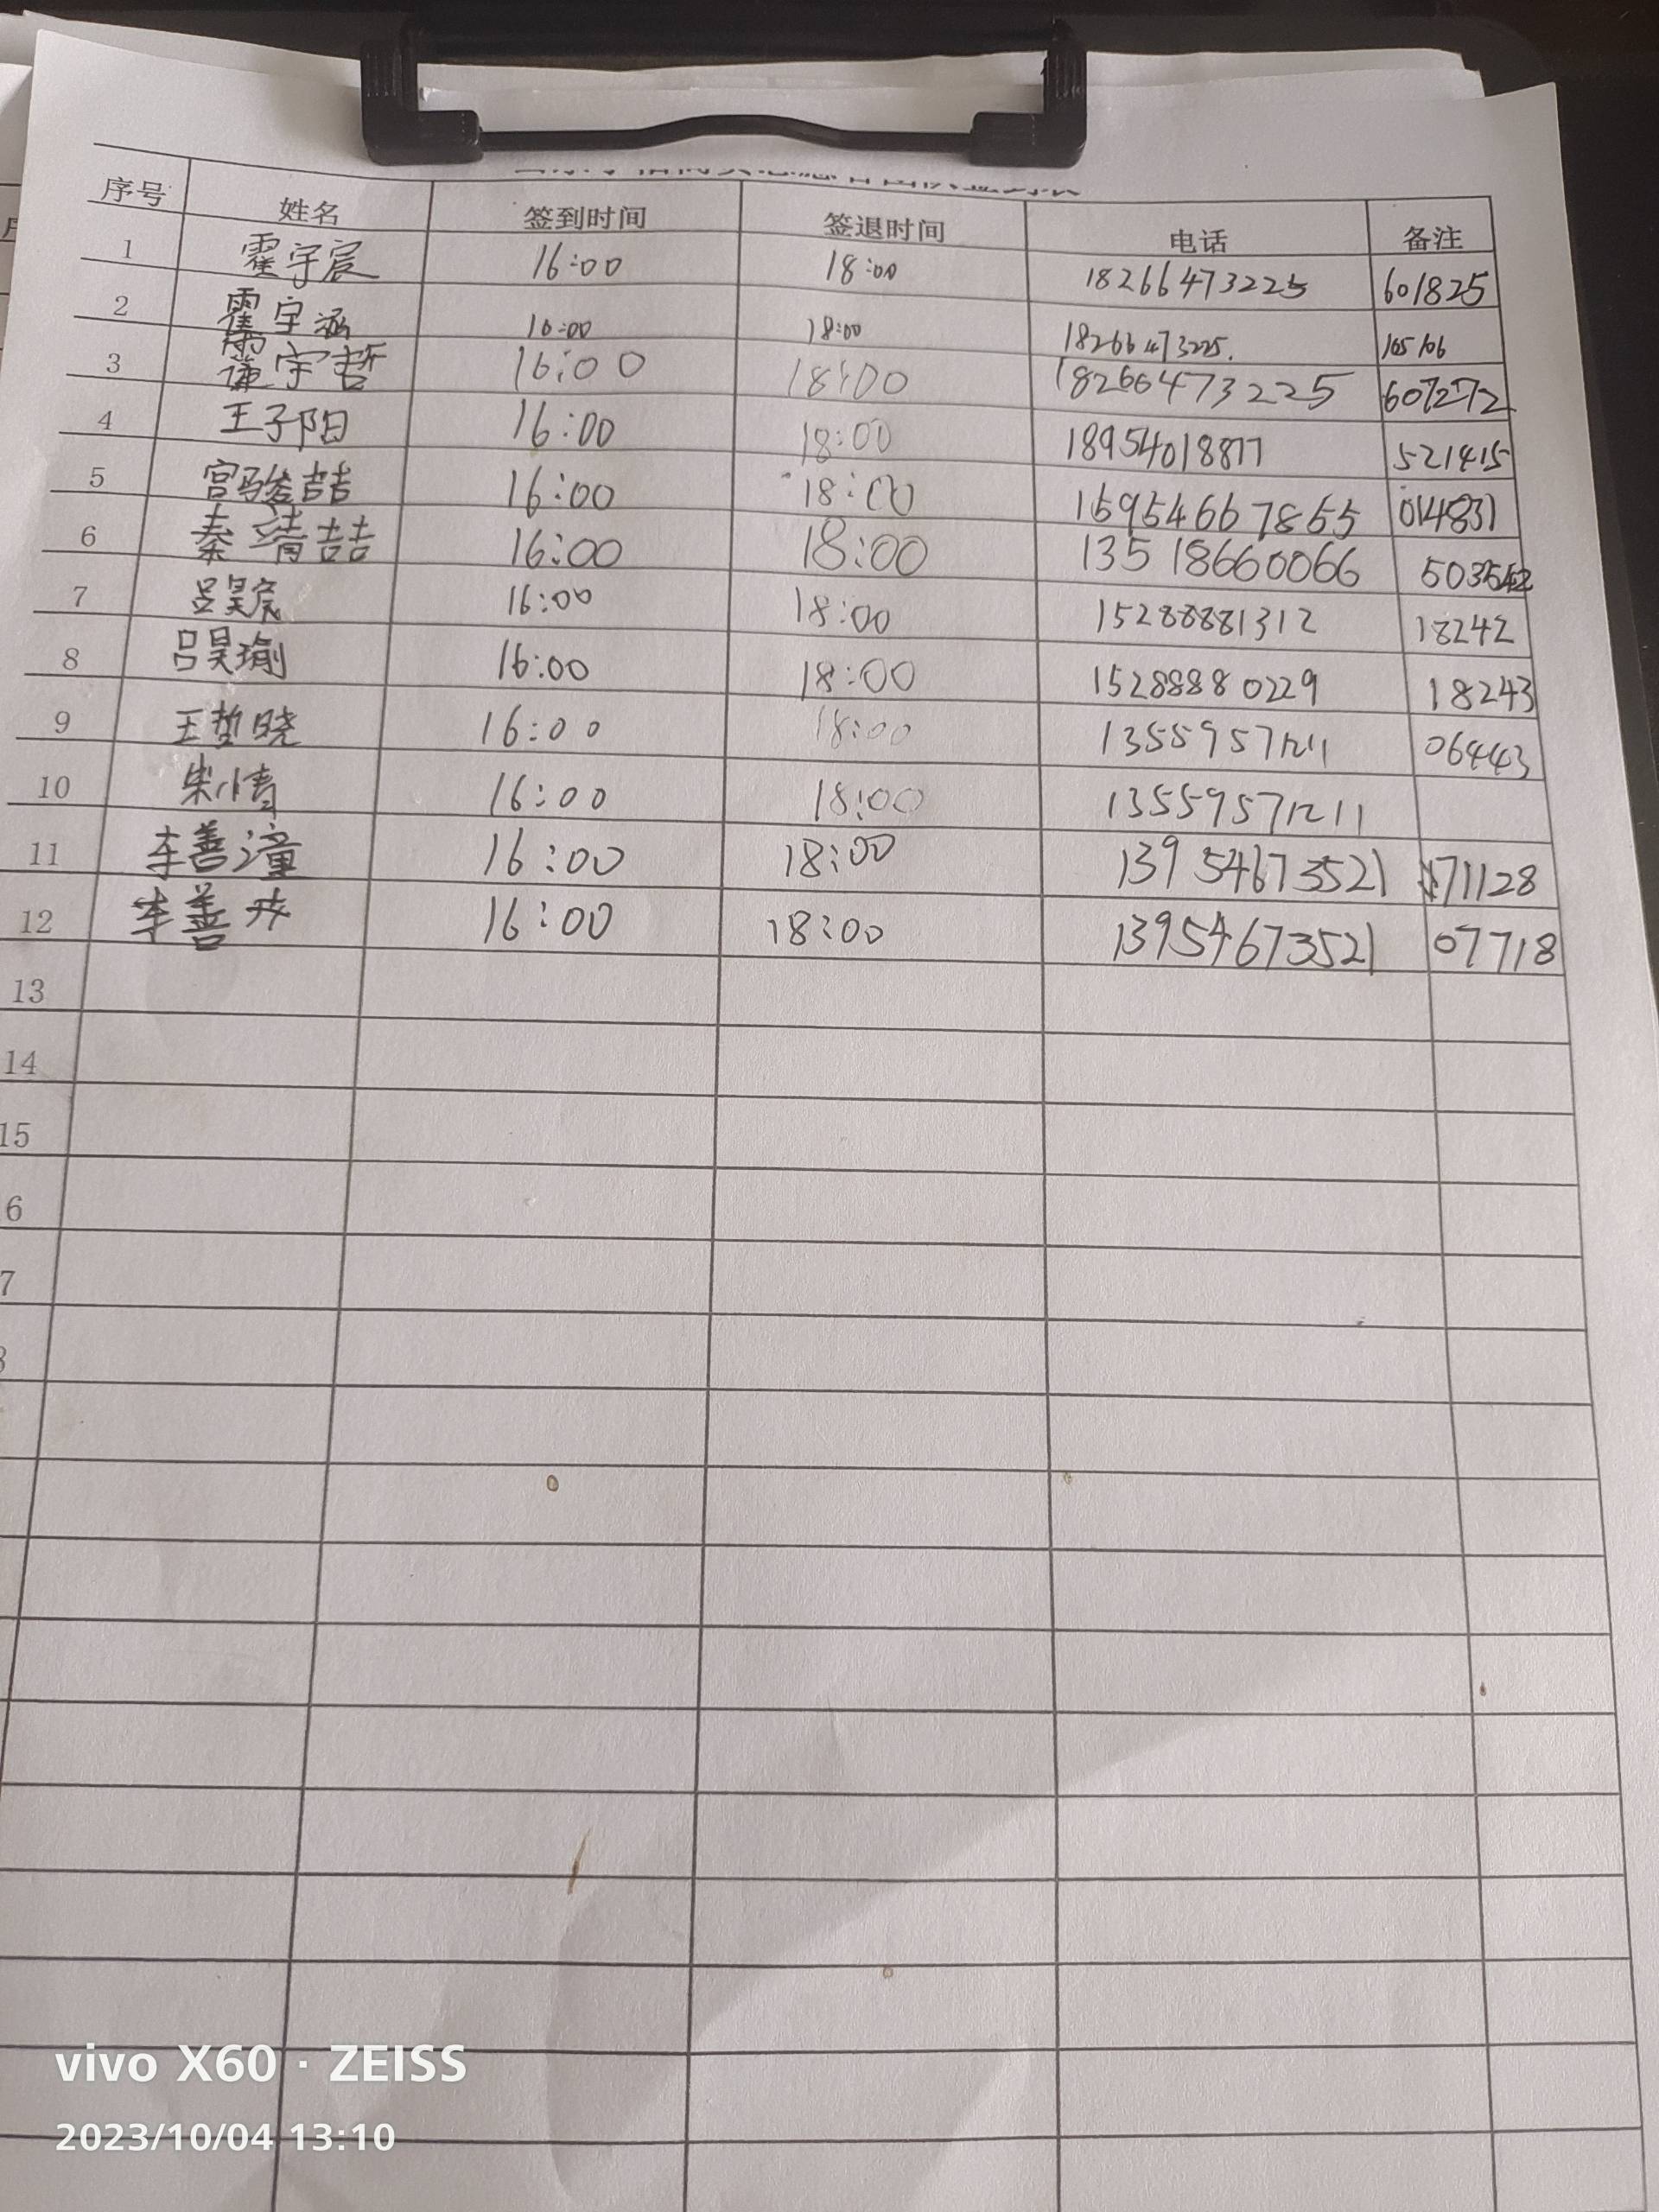 序号 姓名 签到时间 签退时间 电话 备注
1 霍宇宸 16:00 18:00 18266473225 601825
2 霍宇涵 16:00 18:00 18266473225. 105106
3 宇哲 16:00 18:00 18266473225 607272
4 王子阳 16:00 18:00 18954018877 521415
5 宫骏喆 16:00 18:00 159546678655 014831
6 秦靖喆 16:00 18:00 13518660066 503542
7 吕昊宸 16:00 18:00 15288881312 18242
8 吕昊瑜 16:00 18:00 15288880229 18243
9 王哲晓 16:00 18:00 13559571211 06443
10 宋小倩 16:00 18:00 13559571211
11 李善潼 16:00 18:00 13954673521 171128
12 李善 16:00 18:00 13954673521 07718
13
14
15
6
7
8
vivo X60 · ZEISS
2023/10/04 13:10